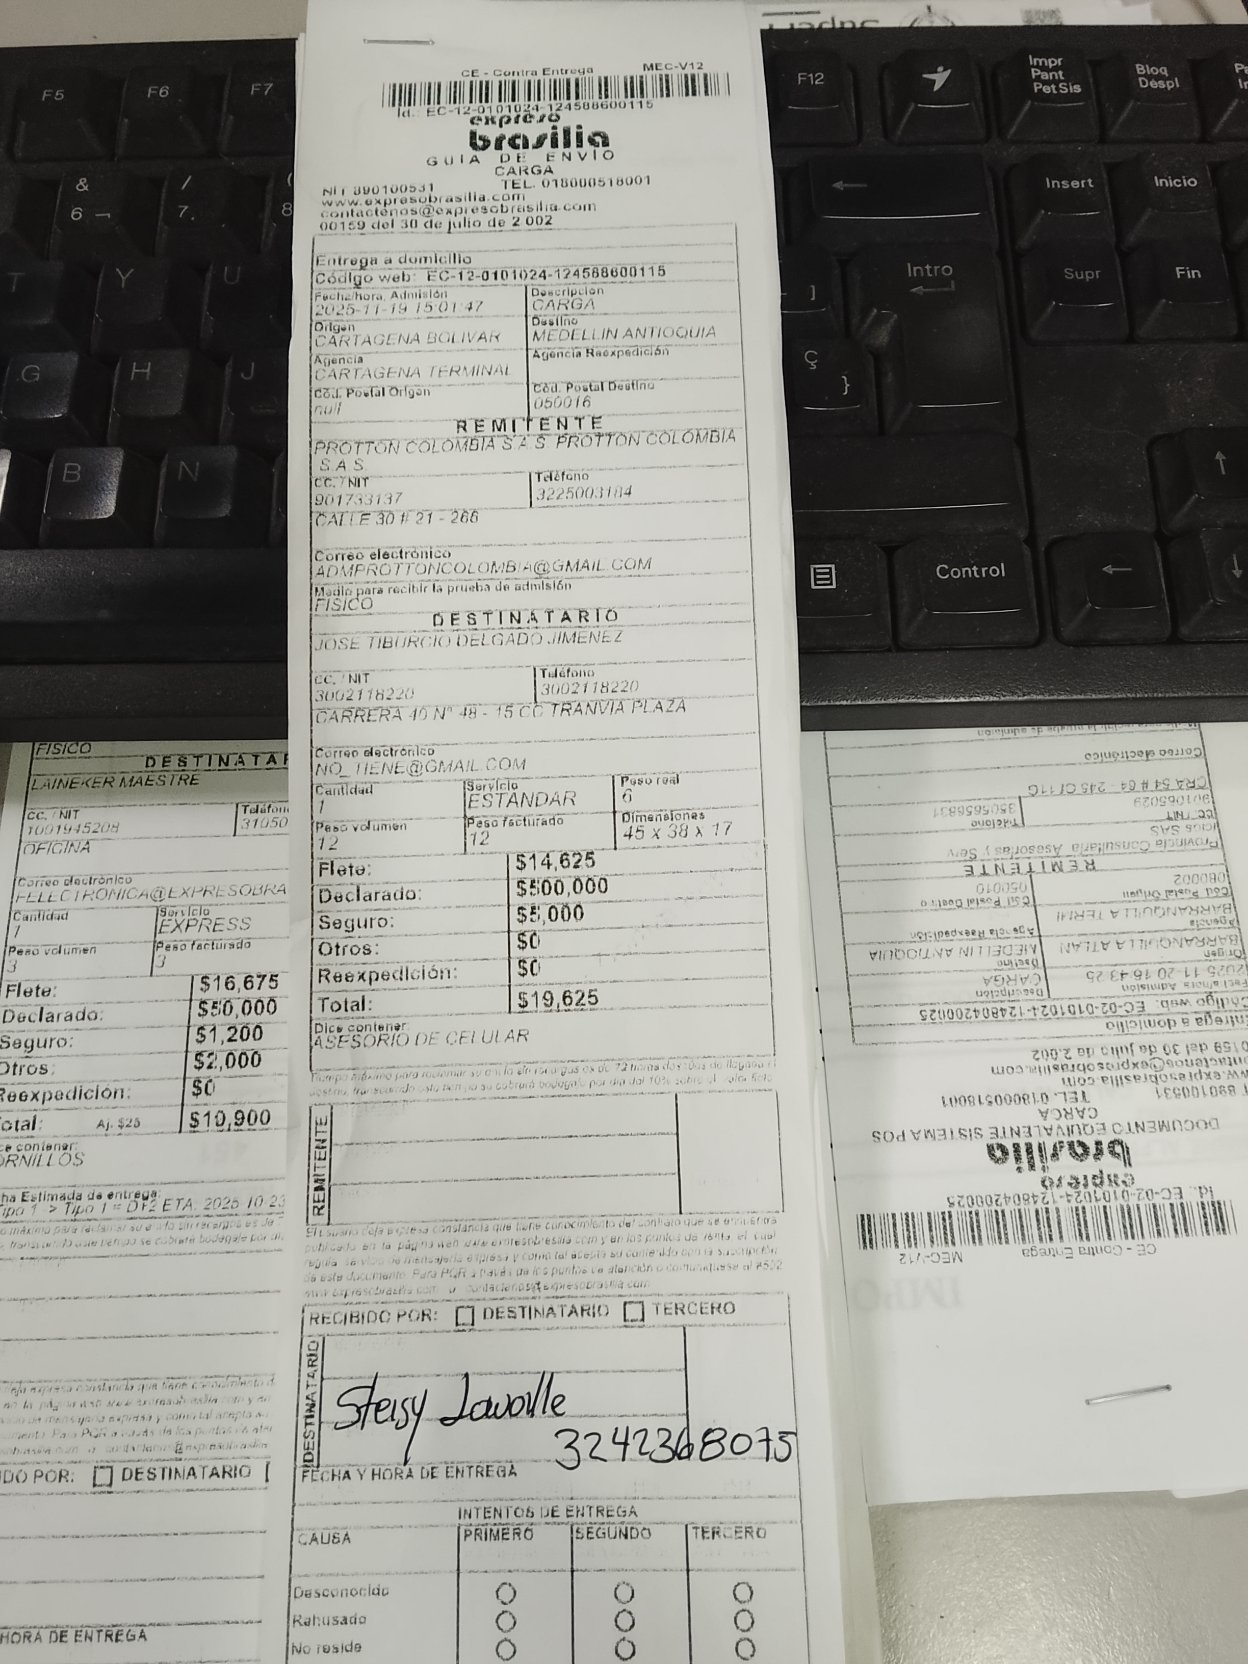 CE - Contra Entrega MEC-V12
Id.: EC-12-0101024-124588600115
expreso
brasilia
GUIA DE ENVIO
CARGA
NIT 890100531 TEL. 018000518001
www.expresobrasilia.com
contactenos@expresobrasilia.com
00159 del 30 de julio de 2 002
Entrega a domicilio
Código web: EC-12-0101024-124588600115
Fecha/hora, Admisión Descripción
2025-11-19 15:01:47 CARGA
Origen Destino
CARTAGENA BOLIVAR MEDELLIN ANTIOQUIA
Agencia Agencia Reexpedición
CARTAGENA TERMINAL
Cód. Postal Origen Cód. Postal Destino
null 050016
REMITENTE
PROTTON COLOMBIA S.A.S. PROTTON COLOMBIA
S.A.S.
CC. / NIT Teléfono
901733137 3225003184
CALLE 30 # 21 - 266
Correo electrónico
ADMPROTTONCOLOMBIA@GMAIL.COM
Medio para recibir la prueba de admisión
FISICO
DESTINATARIO
JOSE TIBURCIO DELGADO JIMENEZ
CC. / NIT Teléfono
3002118220 3002118220
CARRERA 40 N° 48 - 15 CC TRANVIA PLAZA
Correo electrónico
NO_TIENE@GMAIL.COM
Cantidad Servicio Peso real
1 ESTANDAR 6
Peso volumen Peso facturado Dimensiones
12 12 45 x 38 x 17
Flete: $14,625
Declarado: $500,000
Seguro: $5,000
Otros: $0
Reexpedición: $0
Total: $19,625
Dice contener:
ASESORIO DE CELULAR
REMITENTE
El usuario deja expresa constancia que tiene conocimiento del contrato que se encuentra
publicado en la página web www.expresobrasilia.com y en los puntos de venta, el cual
regula servicio de mensajería expresa y como tal acepta su contenido con la suscripción
de este documento. Para PQR a través de los puntos de atención o comuníquese al #502
www.expresobrasilia.com o contactenos@expresobrasilia.com
RECIBIDO POR: DESTINATARIO TERCERO
DESTINATARIO
Steisy
3242368075
FECHA Y HORA DE ENTREGA
INTENTOS DE ENTREGA
CAUSA PRIMERO SEGUNDO TERCERO
Desconocido
Rehusado
No reside
FISICO
DESTINATAR
LAINEKER MAESTRE
CC. / NIT Teléfono
1001945208 31050
OFICINA
Correo electrónico
FELECTRONICA@EXPRESOBRA
Cantidad Servicio
1 EXPRESS
Peso volumen Peso facturado
3 3
Flete: $16,675
Declarado: $50,000
Seguro: $1,200
Otros: $2,000
Reexpedición: $0
otal: Aj. $25 $10,900
ce contener:
ORNILLOS
ha Estimada de entrega:
ipo 1 -> Tipo 1 = D+2 ETA: 2025-10-23
DO POR: DESTINATARIO
HORA DE ENTREGA
CE - Contra Entrega MEC-V12
Id.: EC-02-0101024-124804200025
expreso
brasilia
DOCUMENTO EQUIVALENTE SISTEMA POS
CARGA
T 890100531 TEL. 018000518001
w.expresobrasilia.com
ontactenos@expresobrasilia.com
0159 del 30 de julio de 2.002
Entrega a domicilio
Código web: EC-02-0101024-124804200025
Fecha/hora Admisión Descripción
2025-11-20 16:43:25 CARGA
Origen Destino
BARRANQUILLA ATLAN MEDELLIN ANTIOQUIA
Agencia Agencia Reexpedición
BARRANQUILLA TERMI
Cód. Postal Origen Cód. Postal Destino
080002 050010
REMITENTE
Provincia Consultaria Asesorias y Serv
icios SAS
CC. / NIT Teléfono
901065029 3505656831
CRA 54 # 64 - 245 Of 11G
Correo electrónico
F5 F6 F7 F12
Impr
Pant
PetSis
Bloq
Despl
& / (
6 ¬ 7. 8
T Y U
G H J
B N
Insert Inicio
Intro Supr Fin
]
Ç }
Control